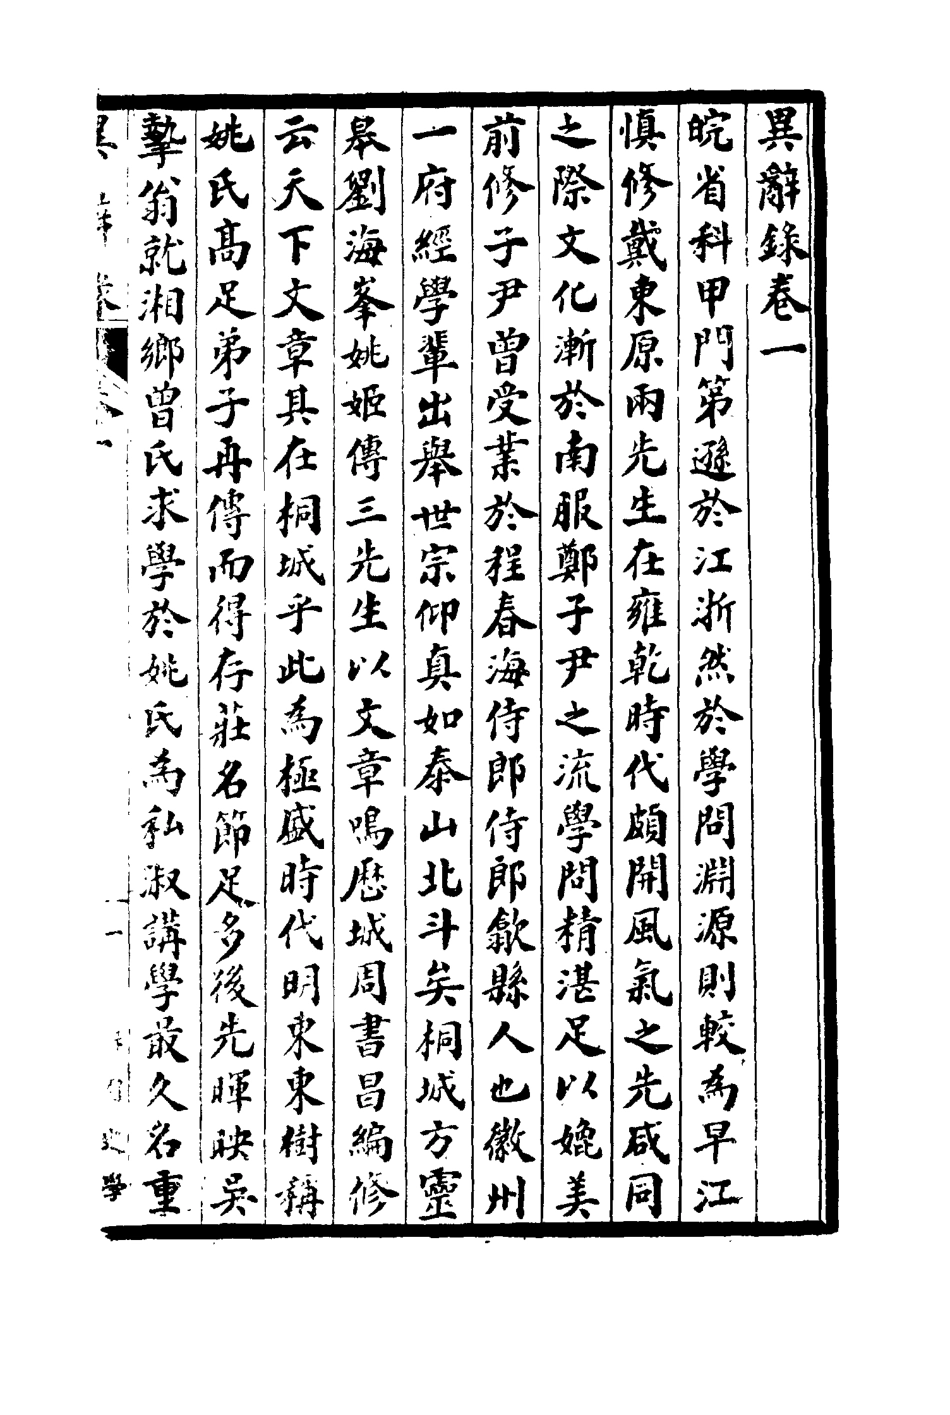 異辭錄卷一
皖省科甲門第遜於江浙然於學問淵源則較為早江
慎修戴東原兩先生在雍乾時代頗開風氣之先咸同
之際文化漸於南服鄭子尹之流學問精湛足以媲美
前修子尹曾受業於程春海侍郎侍郎歙縣人也徽州
一府經學輩出舉世宗仰真如泰山北斗矣桐城方靈
皋劉海峯姚姬傳三先生以文章鳴歷城周書昌編修
云天下文章其在桐城乎此為極盛時代明東東樹稱
姚氏高足弟子再傳而得存莊名節足多後先暉映吳
摯翁就湘鄉曾氏求學於姚氏為私淑講學最久名重